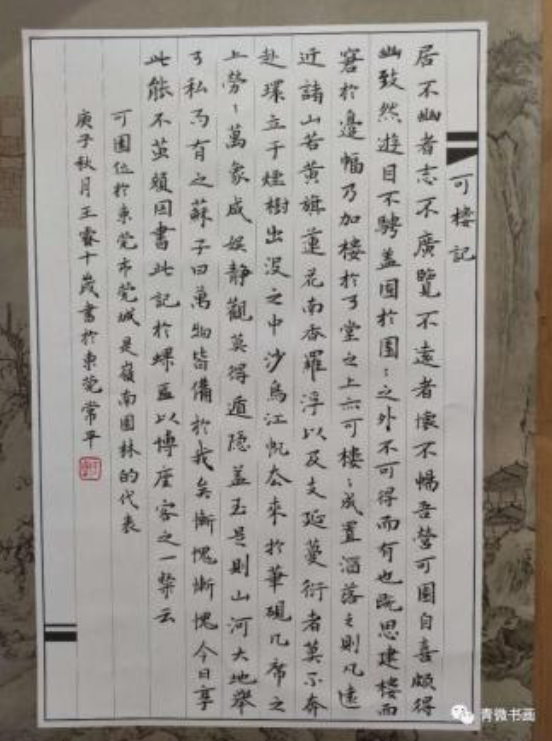 可楼記
居不幽者志不廣覽不遠者懷不暢吾營可園自喜頗得
幽致然遊目不騁盖囿於園園之外不可得而有也既思建楼而
窘於邊幅乃加楼於可堂之上亦可楼楼成置酒落之則凡遠
近諸山若黄旗蓮花南香羅浮以及支延蔓衍者莫不奔
赴環立于烟樹出没之中沙鳥江帆去來於華硯几席之
上勞勞萬象咸娱静觀莫得遁隱盖至是則山河大地舉
可私而有之蘇子曰萬物皆備於我矣慚愧慚愧今日享
此能不茧頭因書此記於螺盃以博座客之一粲云
可園位於東莞市莞城是嶺南園林的代表
庚子秋月王睿十歲書於東莞常平
青微书画